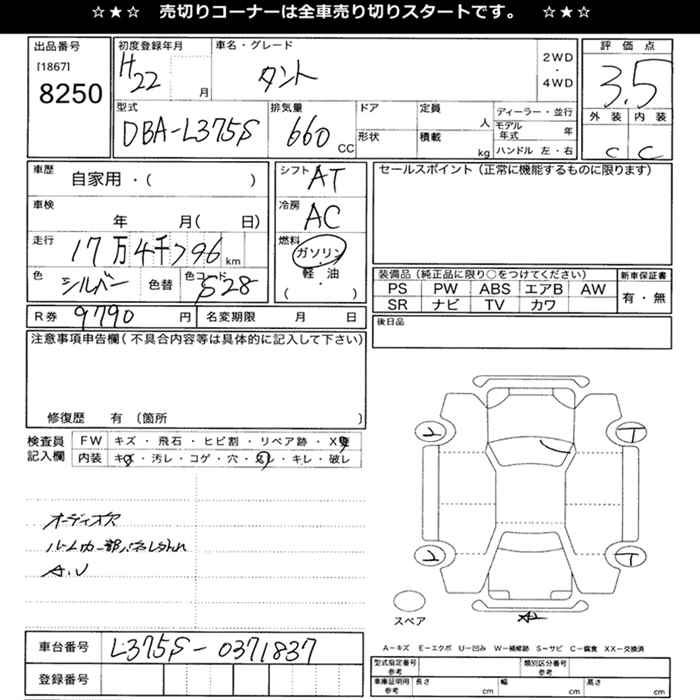 ☆★☆ 売切りコーナーは全車売り切りスタートです。 ☆★☆
出品番号 初度登録年月 車名・グレード 評価点
[1867] H22 月 タント 2WD・4WD 3.5
8250
型式 排気量 ドア 定員 ディーラー・並行 外装 内装
DBA-L375S 660 CC 人 モデル年式 年 C C
形状 積載 kg ハンドル 左・右
車歴 自家用・( ) シフト AT セールスポイント(正常に機能するものに限ります)
車検 年 月( 日) 冷房 AC
走行 17万4千796 km 燃料 ガソリン・軽油
( )
色 シルバー 色替 色コード S28
装備品(純正品に限り○をつけてください) 新車保証書
PS PW ABS エアB AW 有・無
SR ナビ TV カワ
R券 9790 円 名変期限 月 日 後日品
注意事項申告欄(不具合内容等は具体的に記入して下さい)
修復歴 有 (箇所
検査員 FW キズ・飛石・ヒビ割・リペア跡・X
記入欄 内装 キズ・汚レ・コゲ・穴・ ・キレ・破レ
オーディオ欠
A.U
スペア
A－キズ E－エクボ U－凹み W－補修跡 S－サビ C－腐食 XX－交換済
車台番号 L375S-0371837
登録番号
型式指定番号 参考 類別区分番号 参考
車庫証明用 参考 長さ cm 幅 cm 高さ cm